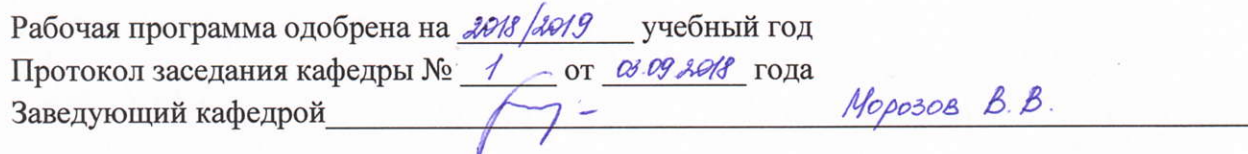 Рабочая программа одобрена на 2018/2019 учебный год
Протокол заседания кафедры № 1 от 03.09.2018 года
Заведующий кафедрой Морозов В. В.